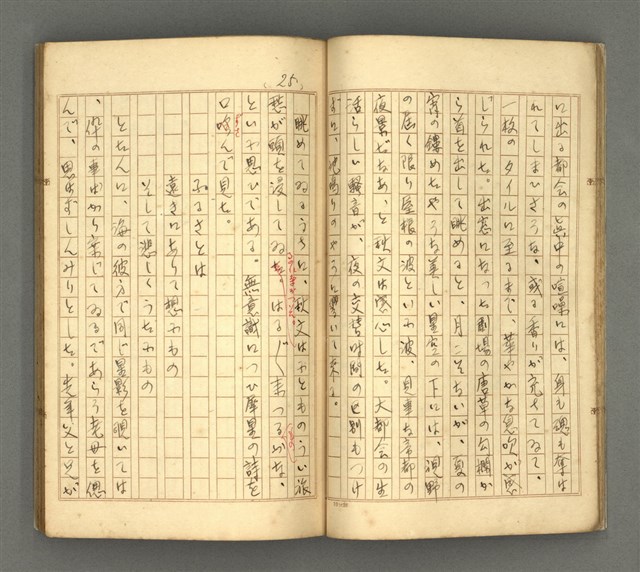 (25)
に出る都会の真中の喧噪には、身も魂も奪は
れてしまひさうな、或る香りが充ちてゐて、
一枚のタイルに至るまで、華やかな息吹が感
じられた。出窓になつた劇場の唐草の公欄か
ら首を出して眺めると、月こそないが、夏の
宵の鏤めたやうな美しい星空の下には、視野
の届く限り屋根の波といふ波、見事な帝都の
夜景だなあ、と秋文は感心した。大都会の生
活らしい騒音が、夜の交替時間の区別もつけ
ずに、地鳴りのやうに響いて来る。
眺めてゐるうちに、秋文はふとものうい旅
愁が胸を浸してゐた。はるばる来つるかな、
といふ思ひである。無意識につひ犀星の詩を
口吟んで見た。
ふるさとは
遠きにありて想ふもの
そして悲しくうたふもの
とたんに、海の彼方で同じ星影を覗いては
、伜の重出から案じてゐるであらう老母を偲
んで、思はずしんみりとした。老年父と兄が